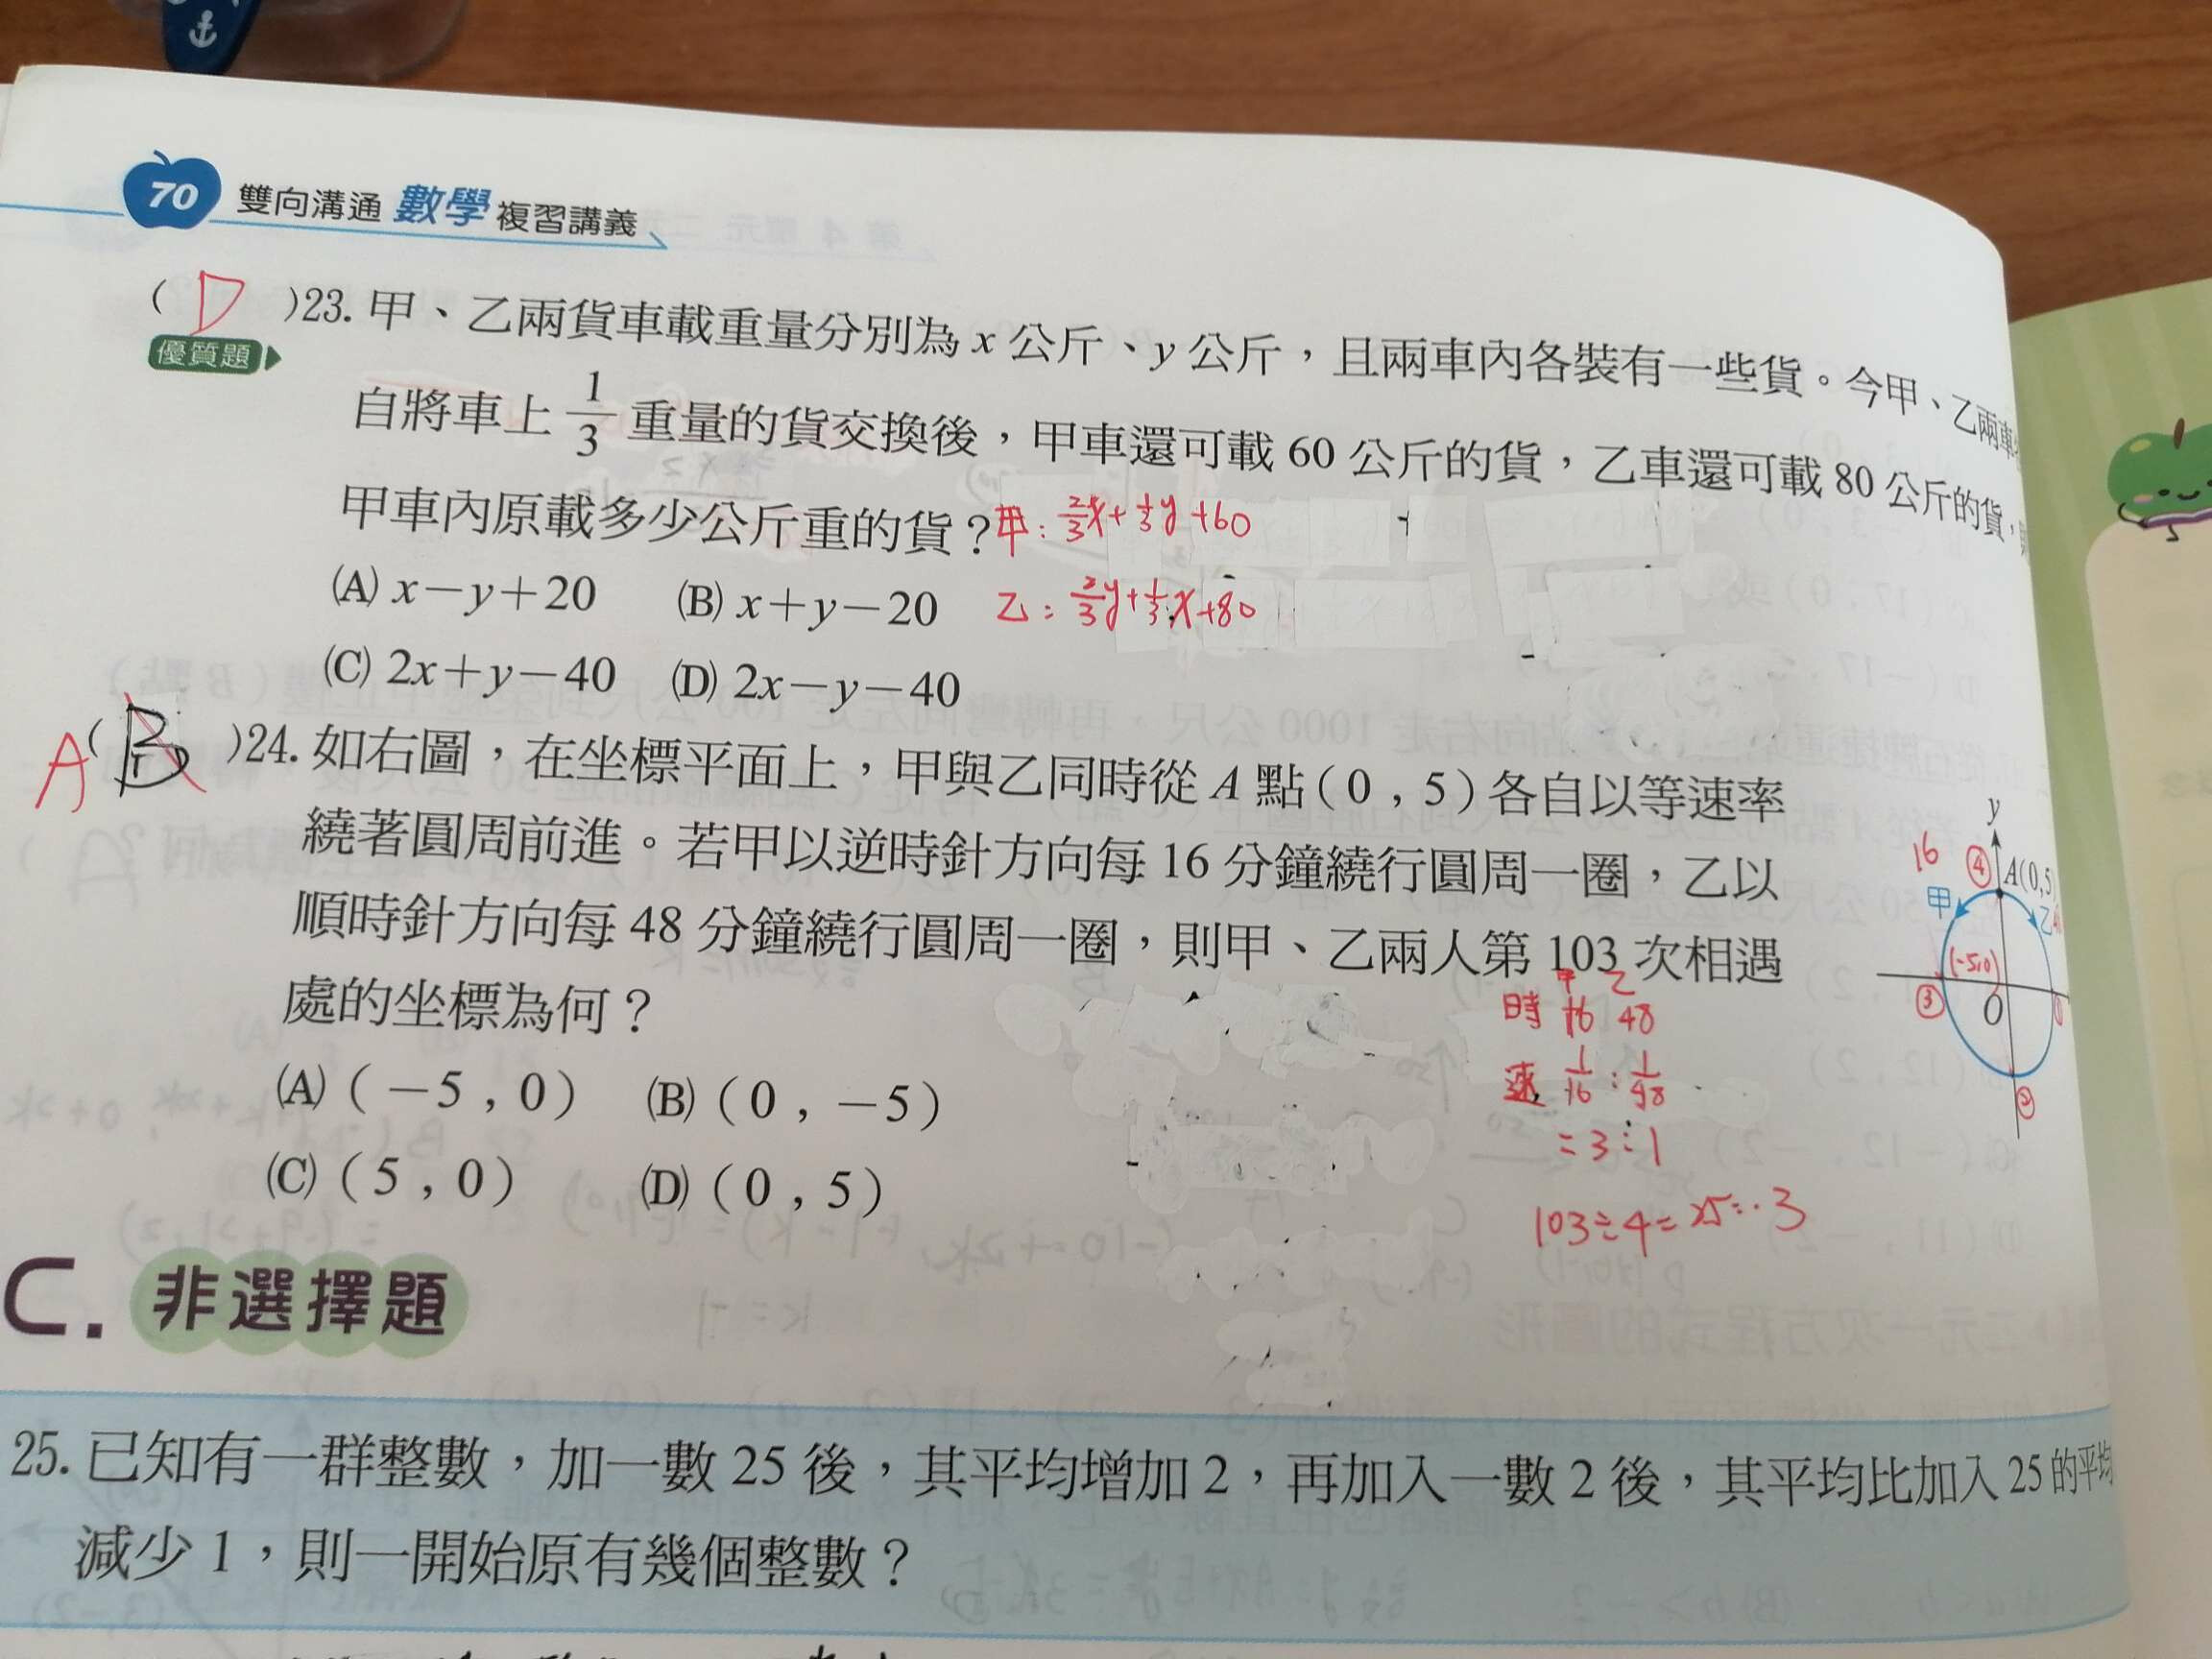 70 雙向溝通 數學 複習講義
( D )23. 甲、乙兩貨車載重量分別為 x 公斤、y 公斤，且兩車內各裝有一些貨。今甲、乙兩車
優質題
自將車上 1/3 重量的貨交換後，甲車還可載 60 公斤的貨，乙車還可載 80 公斤的貨，
甲車內原載多少公斤重的貨？ 甲：2/3x+1/3y+60
(A) x－y＋20 (B) x＋y－20 乙：2/3y+1/3x+80
(C) 2x＋y－40 (D) 2x－y－40
A( B )24. 如右圖，在坐標平面上，甲與乙同時從 A 點( 0 , 5 ) 各自以等速率
繞著圓周前進。若甲以逆時針方向每 16 分鐘繞行圓周一圈，乙以
順時針方向每 48 分鐘繞行圓周一圈，則甲、乙兩人第 103 次相遇
處的坐標為何？
(A) ( －5 , 0 ) (B) ( 0 , －5 )
(C) ( 5 , 0 ) (D) ( 0 , 5 )
甲 乙
時 16 48
速 1/16 : 1/48
= 3 : 1
103÷4=25…3
y
16 ④ A(0,5)
甲 乙
(-5,0)
③ O
②
C. 非選擇題
25. 已知有一群整數，加一數 25 後，其平均增加 2，再加入一數 2 後，其平均比加入 25 的平均
減少 1，則一開始原有幾個整數？